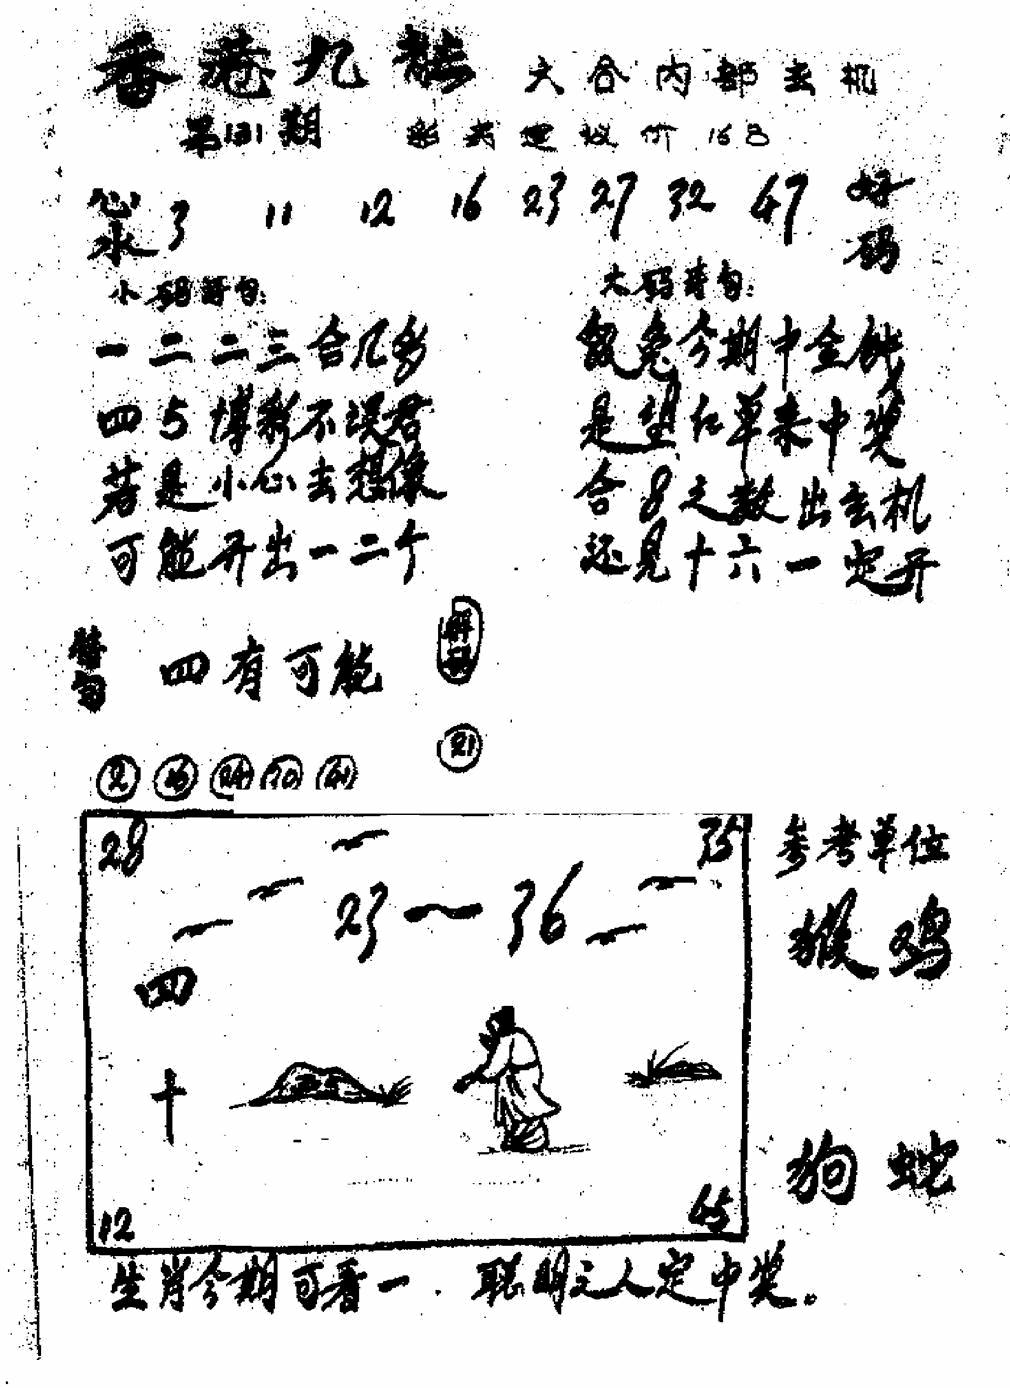 香港九龙 六合内部玄机
第131期 彩 建议价168
心水 3 11 12 16 23 27 32 47 好码
小码诗句:
一二二三合几多
四5博彩不误君
若是小心去想像
可能开出一二个
大码诗句:
兔今期中金
是 红单来中奖
合8之数出玄机
还见十六一定开
句 四有可能
解
21
2 24 10
28 35
23—36
四
十
12 45
参考单位
猴鸡
狗蛇
生肖今期可看一.聪明之人定中奖。